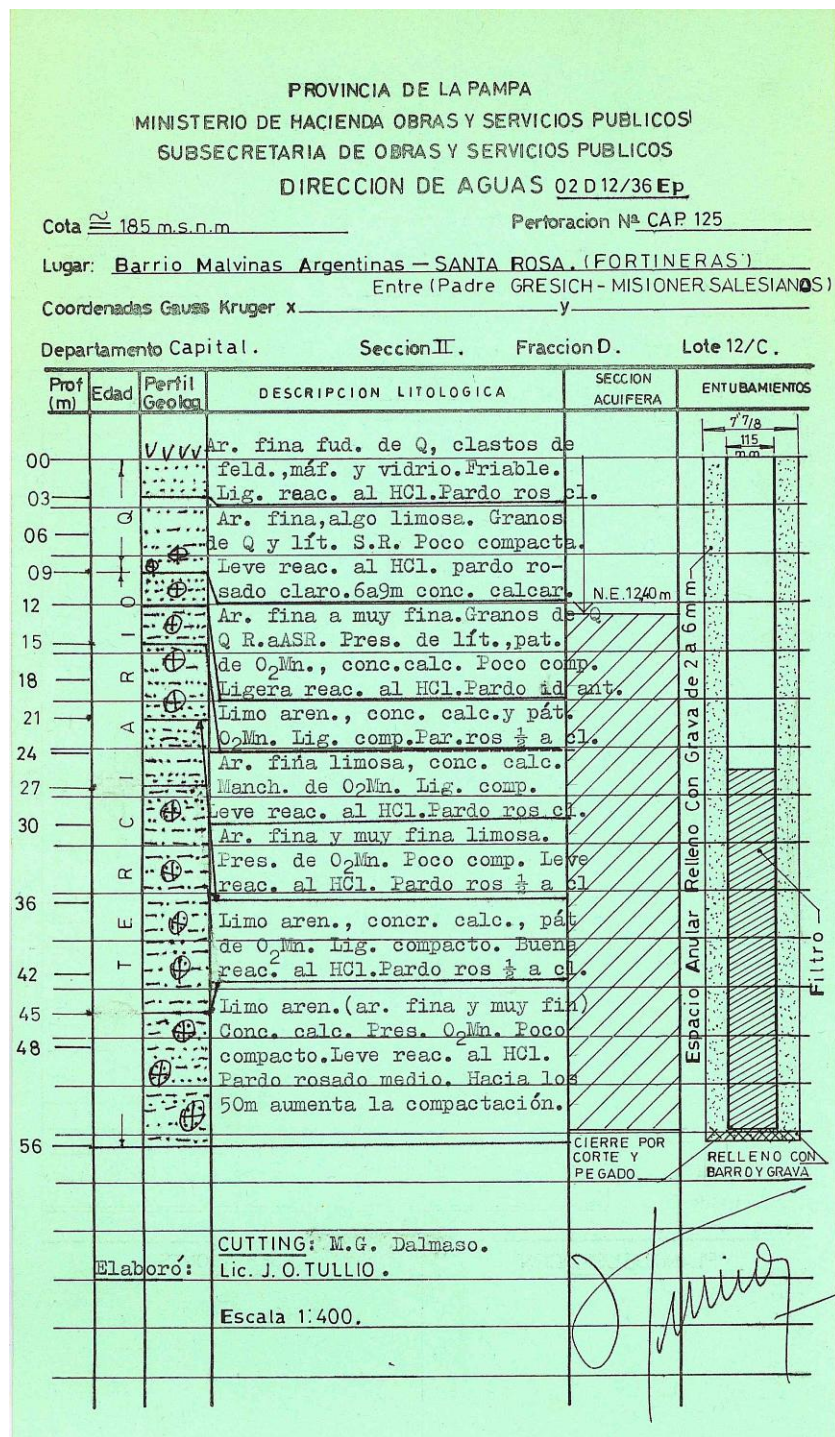 PROVINCIA DE LA PAMPA
MINISTERIO DE HACIENDA OBRAS Y SERVICIOS PUBLICOS
SUBSECRETARIA DE OBRAS Y SERVICIOS PUBLICOS
DIRECCION DE AGUAS 02 D 12/36 Ep
Cota ≅ 185 m.s.n.m Perforacion Nª CAP. 125
Lugar: Barrio Malvinas Argentinas — SANTA ROSA. (FORTINERAS)
Entre (Padre GRESICH - MISIONER SALESIANOS)
Coordenadas Gauss Kruger x y
Departamento Capital. Seccion II. Fraccion D. Lote 12/C.
Prof (m) Edad Perfil Geolog DESCRIPCION LITOLOGICA SECCION ACUIFERA ENTUBAMIENTOS
7" 7/8
115 m.m
VVVV Ar. fina fud. de Q, clastos de
00 feld.,máf. y vidrio.Friable.
03 Lig. reac. al HCl.Pardo ros cl.
Ar. fina,algo limosa. Granos
06 de Q y lít. S.R. Poco compacta.
09 Leve reac. al HCl. pardo ro-
sado claro.6a9m conc. calcar. N.E.12,40m
12 Ar. fina a muy fina.Granos de Q
15 Q R.aASR. Pres. de lít.,pat.
de O2Mn., conc.calc. Poco comp.
18 Ligera reac. al HCl.Pardo id ant.
21 Limo aren., conc. calc.y pát.
O2Mn. Lig. comp.Par.ros ½ a cl.
24 Ar. fina limosa, conc. calc.
27 Manch. de O2Mn. Lig. comp.
Leve reac. al HCl.Pardo ros cl.
30 Ar. fina y muy fina limosa.
Pres. de O2Mn. Poco comp. Leve
reac. al HCl. Pardo ros ½ a cl
36 Limo aren., concr. calc., pát
de O2Mn. Lig. compacto. Buena
42 reac. al HCl.Pardo ros ½ a cl.
45 Limo aren.(ar. fina y muy fin)
Conc. calc. Pres. O2Mn. Poco
48 compacto.Leve reac. al HCl.
Pardo rosado medio. Hacia los
50m aumenta la compactación.
56
Q
TERCIARIO
Espacio Anular Relleno Con Grava de 2 a 6 mm
Filtro
CIERRE POR
CORTE Y
PEGADO
RELLENO CON
BARRO Y GRAVA
CUTTING: M.G. Dalmaso.
Elaboró: Lic. J.O.TULLIO.
Escala 1:400.